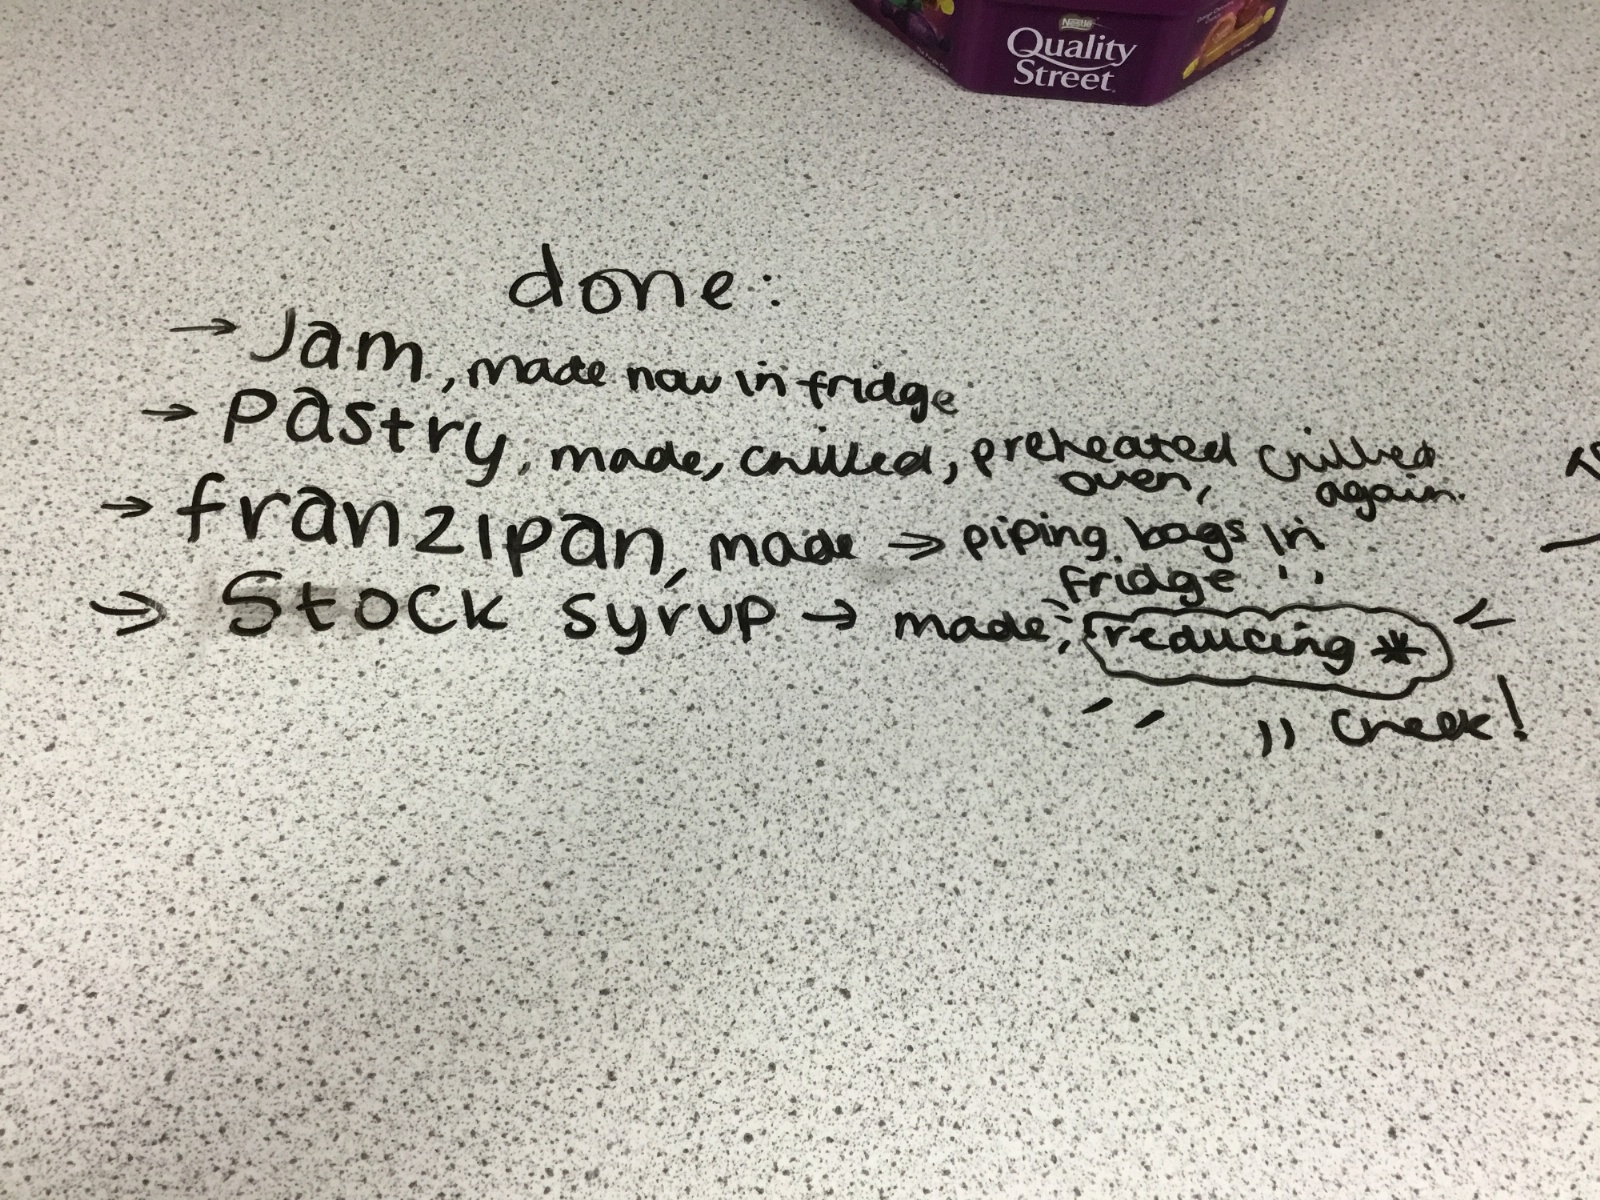 Nestlé
Quality
Street
done:
→ Jam, made now in fridge
→ Pastry, made, chilled, preheated oven, chilled again.
→ franzipan, made → piping bags in fridge
→ Stock syrup → made, reducing *
check!